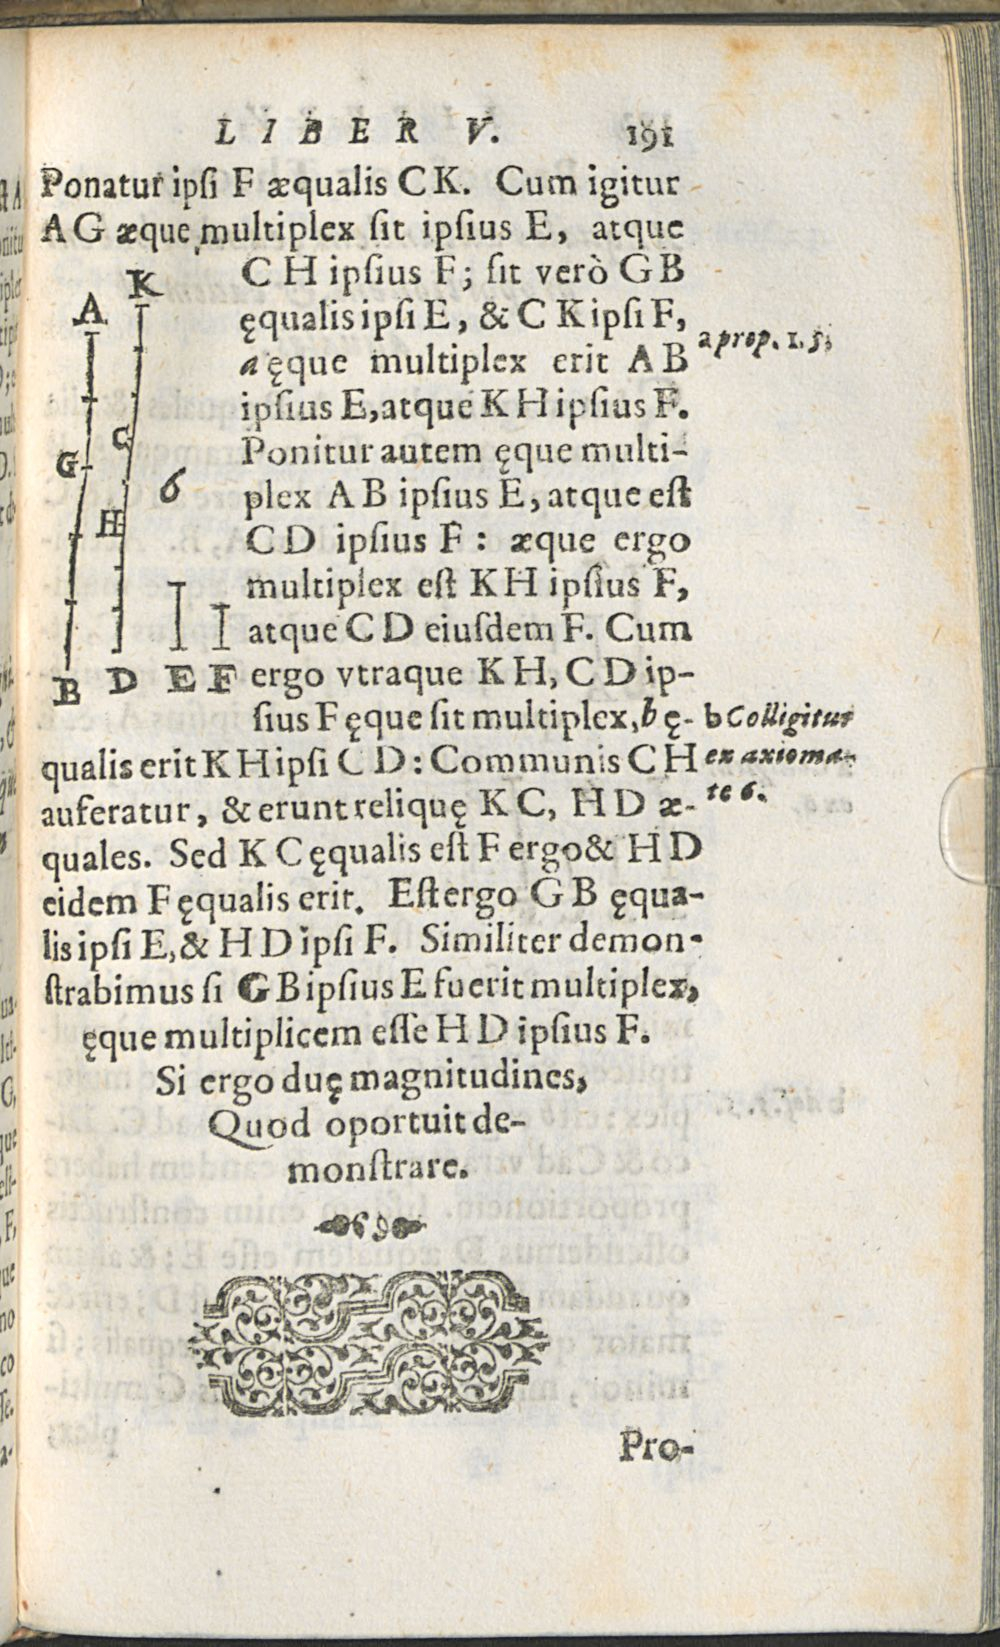 LIBER V. 191
Ponatur ipſi F æqualis C K. Cum igitur
A G æque multiplex ſit ipſius E, atque
C H ipſius F; ſit verò G B
ęqualis ipſi E, & C K ipſi F,
a ęque multiplex erit A B
a prop. 1. 5.
ipſius E, atque K H ipſius F.
Ponitur autem ęque multi-
plex A B ipſius E, atque eſt
C D ipſius F : æque ergo
multiplex eſt K H ipſius F,
atque C D eiuſdem F. Cum
ergo vtraque K H, C D ip-
ſius F ęque ſit multiplex, b ę-
b Colligitur
qualis erit K H ipſi C D : Communis C H
ex axioma-
auferatur, & erunt reliquę K C, H D æ-
te 6.
quales. Sed K C ęqualis eſt F ergo & H D
eidem F ęqualis erit. Eſt ergo G B ęqua-
lis ipſi E, & H D ipſi F. Similiter demon-
ſtrabimus ſi G B ipſius E fuerit multiplex,
ęque multiplicem eſſe H D ipſius F.
Si ergo duę magnitudines,
Quod oportuit de-
monſtrare.
Pro-
K
A
C
G
6
H
B D E F